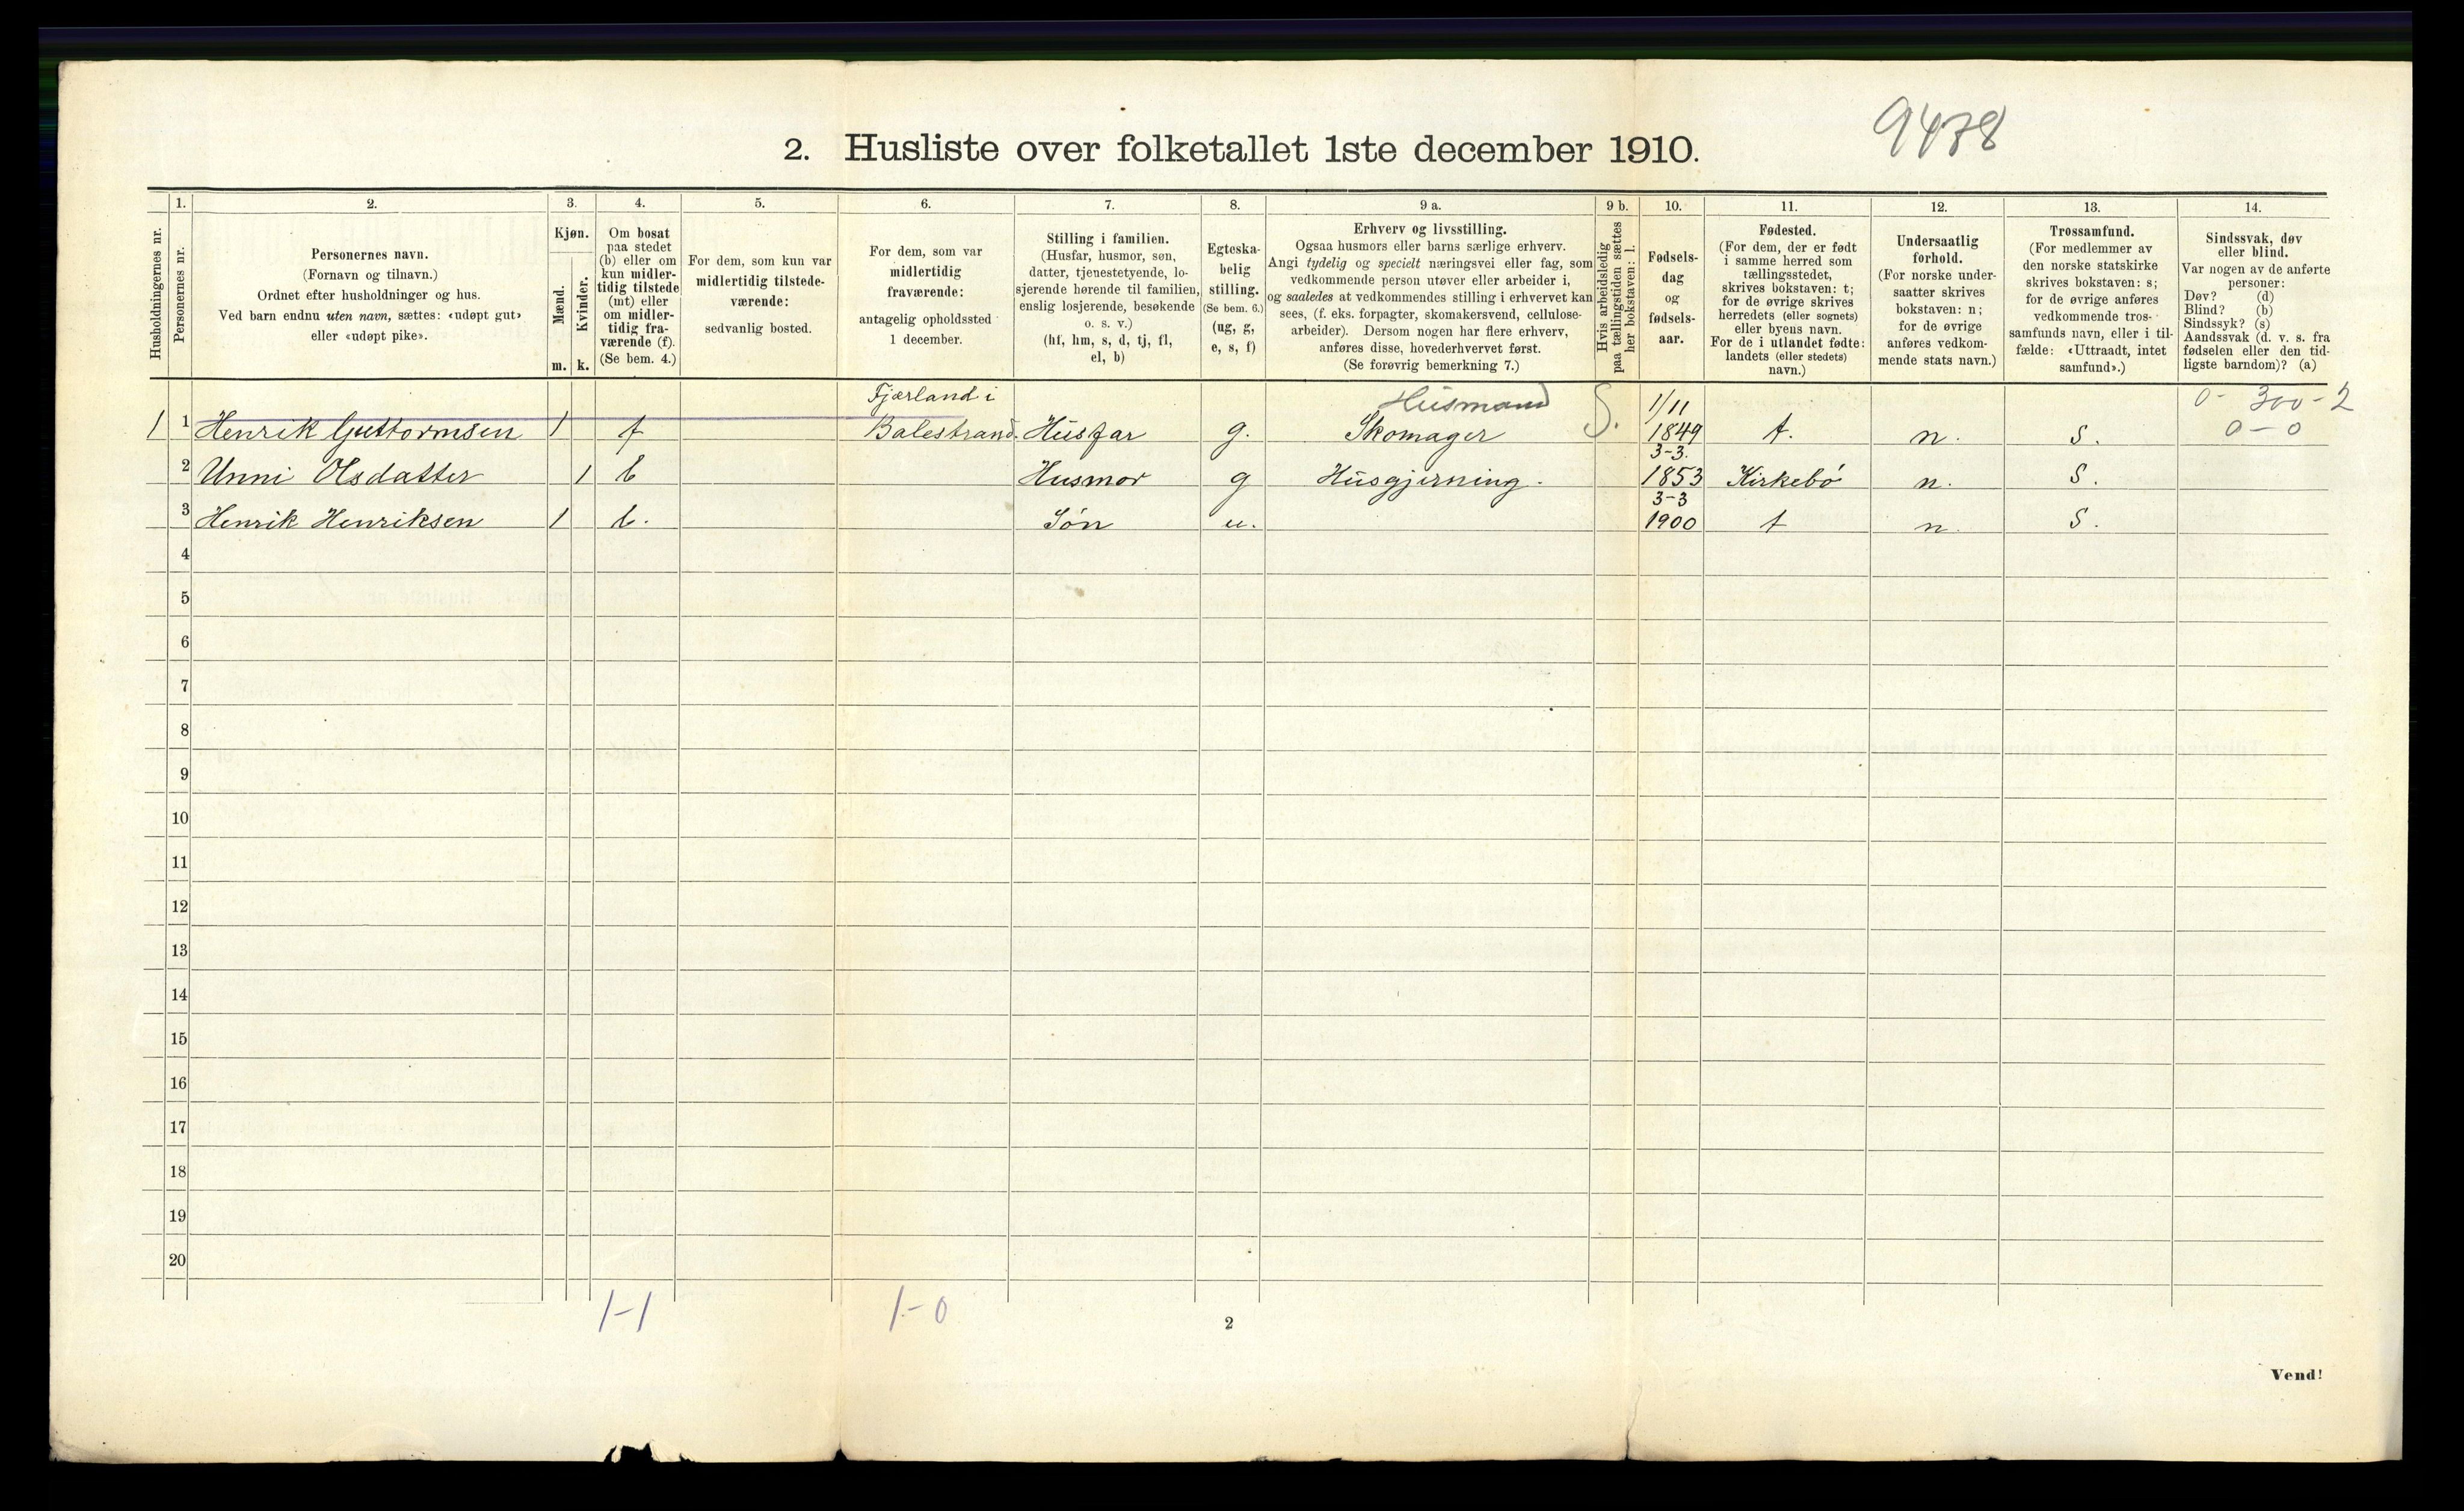 9478
2. Husliste over folketallet 1ste december 1910.
Husholdningernes nr.
1.
Personernes nr.
2.
Personernes navn.
(Fornavn og tilnavn.)
Ordnet efter husholdninger og hus.
Ved barn endnu uten navn, sættes: «udøpt gut»
eller «udøpt pike».
3.
Kjøn.
Mænd.
Kvinder.
m. k.
4.
Om bosat
paa stedet
(b) eller om
kun midler-
tidig tilstede
(mt) eller
om midler-
tidig fra-
værende (f).
(Se bem. 4.)
5.
For dem, som kun var
midlertidig tilstede-
værende:
sedvanlig bosted.
6.
For dem, som var
midlertidig
fraværende:
antagelig opholdssted
1 december.
7.
Stilling i familien.
(Husfar, husmor, søn,
datter, tjenestetyende, lo-
sjerende hørende til familien,
enslig losjerende, besøkende
o. s. v.)
(hf, hm, s, d, tj, fl,
el, b)
8.
Egteska-
belig
stilling.
(Se bem. 6.)
(ug, g,
e, s, f)
9 a.
Erhverv og livsstilling.
Ogsaa husmors eller barns særlige erhverv.
Angi tydelig og specielt næringsvei eller fag, som
vedkommende person utøver eller arbeider i,
og saaledes at vedkommendes stilling i erhvervet kan
sees, (f. eks. forpagter, skomakersvend, cellulose-
arbeider). Dersom nogen har flere erhverv,
anføres disse, hovederhvervet først.
(Se forøvrig bemerkning 7.)
9 b.
Hvis arbeidsledig
paa tællingstiden sættes
her bokstaven: l.
10.
Fødsels-
dag
og
fødsels-
aar.
11.
Fødested.
(For dem, der er født
i samme herred som
tællingsstedet,
skrives bokstaven: t;
for de øvrige skrives
herredets (eller sognets)
eller byens navn.
For de i utlandet fødte:
landets (eller stedets)
navn.)
12.
Undersaatlig
forhold.
(For norske under-
saatter skrives
bokstaven: n;
for de øvrige
anføres vedkom-
mende stats navn.)
13.
Trossamfund.
(For medlemmer av
den norske statskirke
skrives bokstaven: s;
for de øvrige anføres
vedkommende tros-
samfunds navn, eller i til-
fælde: «Uttraadt, intet
samfund».)
14.
Sindssvak, døv
eller blind.
Var nogen av de anførte
personer:
Døv? (d)
Blind? (b)
Sindssyk? (s)
Aandssvak (d. v. s. fra
fødselen eller den tid-
ligste barndom)? (a)
Fjærland i Husmand 1/11 0- 300-2
1 1 Henrik Guttormsen 1 f Balestrand. Husfar g. Skomager S. 1849 t. n. s. 0-0
3-3.
2 Unni Olsdatter 1 b Husmor g Husgjerning. 1853 Kirkebø n. s.
3-3
3 Henrik Henriksen 1 b. Søn u. 1900 t n. s.
4
5
6
7
8
9
10
11
12
13
14
15
16
17
18
19
20
1-1 1-0
2
Vend!